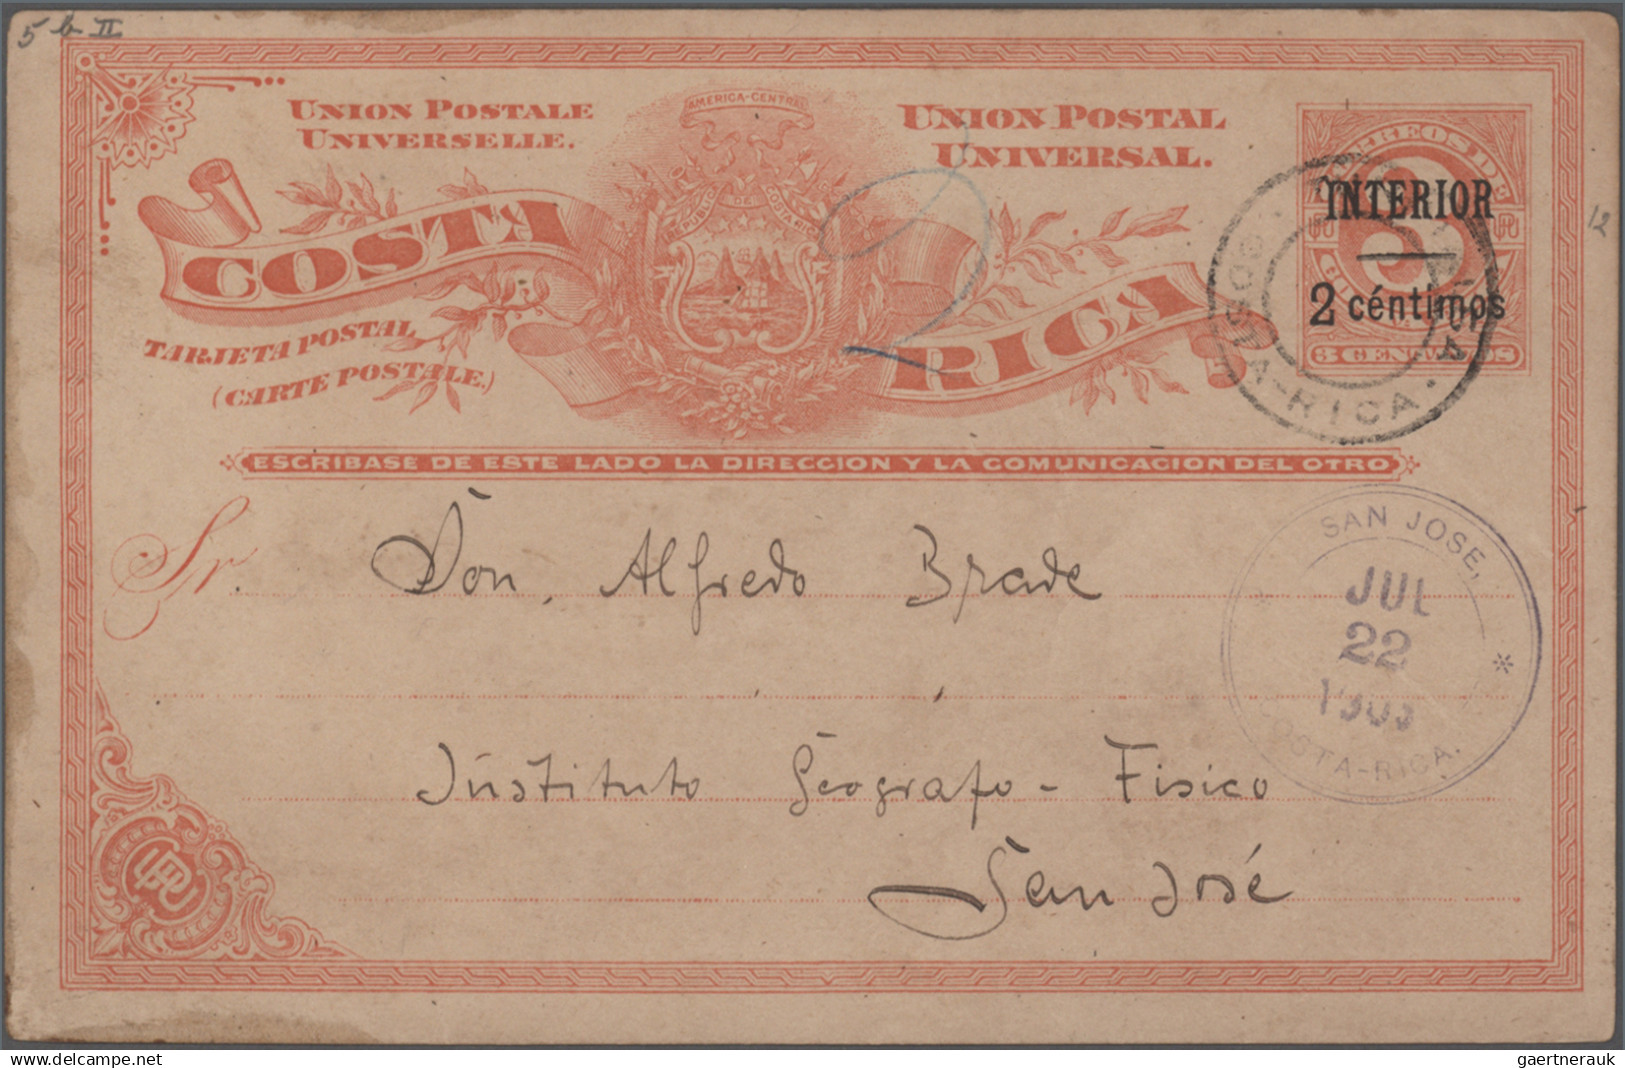 5 b II
UNION POSTALE
UNIVERSELLE.
AMERICA-CENTRAL
UNION POSTAL
UNIVERSAL.
CORREOS DE
INTERIOR
2 céntimos
3 CENTAVOS
12
REPUBLICA DE COSTA RICA
COSTA
RICA
TARJETA POSTAL
(CARTE POSTALE.)
COSTA-RICA.
2
ESCRIBASE DE ESTE LADO LA DIRECCION Y LA COMUNICACION DEL OTRO
Sr.
Don. Alfredo Brade
SAN JOSE,
JUL
22
COSTA-RICA.
Instituto Geografo-Fisico
San José
UPU
gaertnerauk @ delcampe.net
gaertnerauk